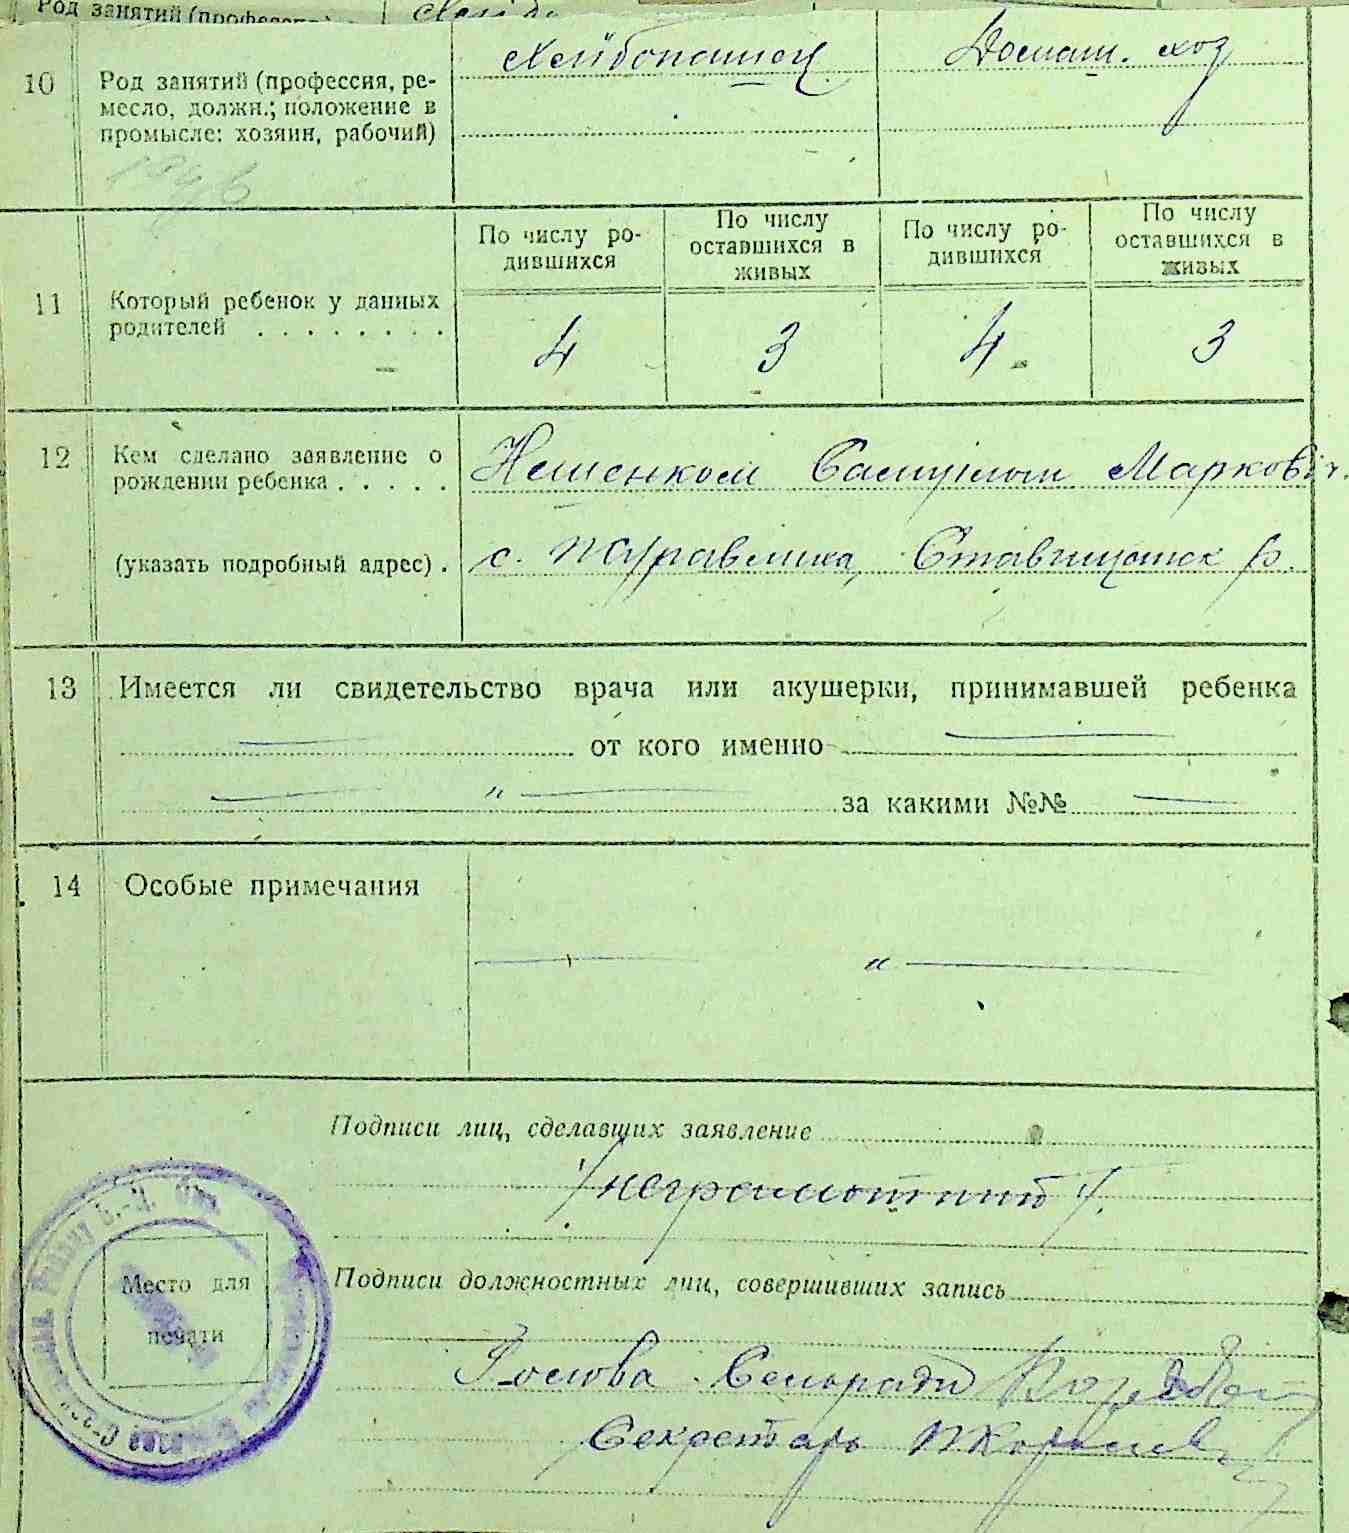 Род занятий (профессия,
10
Род занятий (профессия, ре-
месло, должн.; положение в
промысле: хозяин, рабочий)
Хлібопашец
Домаш. хоз
11
Который ребенок у данных
родителей . . . . . . . .
По числу ро-
дившихся
По числу
оставшихся в
живых
По числу ро-
дившихся
По числу
оставшихся в
живых
4 3 4 3
12
Кем сделано заявление о
рождении ребенка . . . . .
Самуілом Маркович.
(указать подробный адрес) .
с. Журавлиха, Ставищанск р.
13 Имеется ли свидетельство врача или акушерки, принимавшей ребенка
от кого именно
" за какими №№
14 Особые примечания
"
Подписи лиц, сделавших заявление
/неграмотний/.
Подписи должностных лиц, совершивших запись
Место для
печати
Голова Сельради
Секретарь